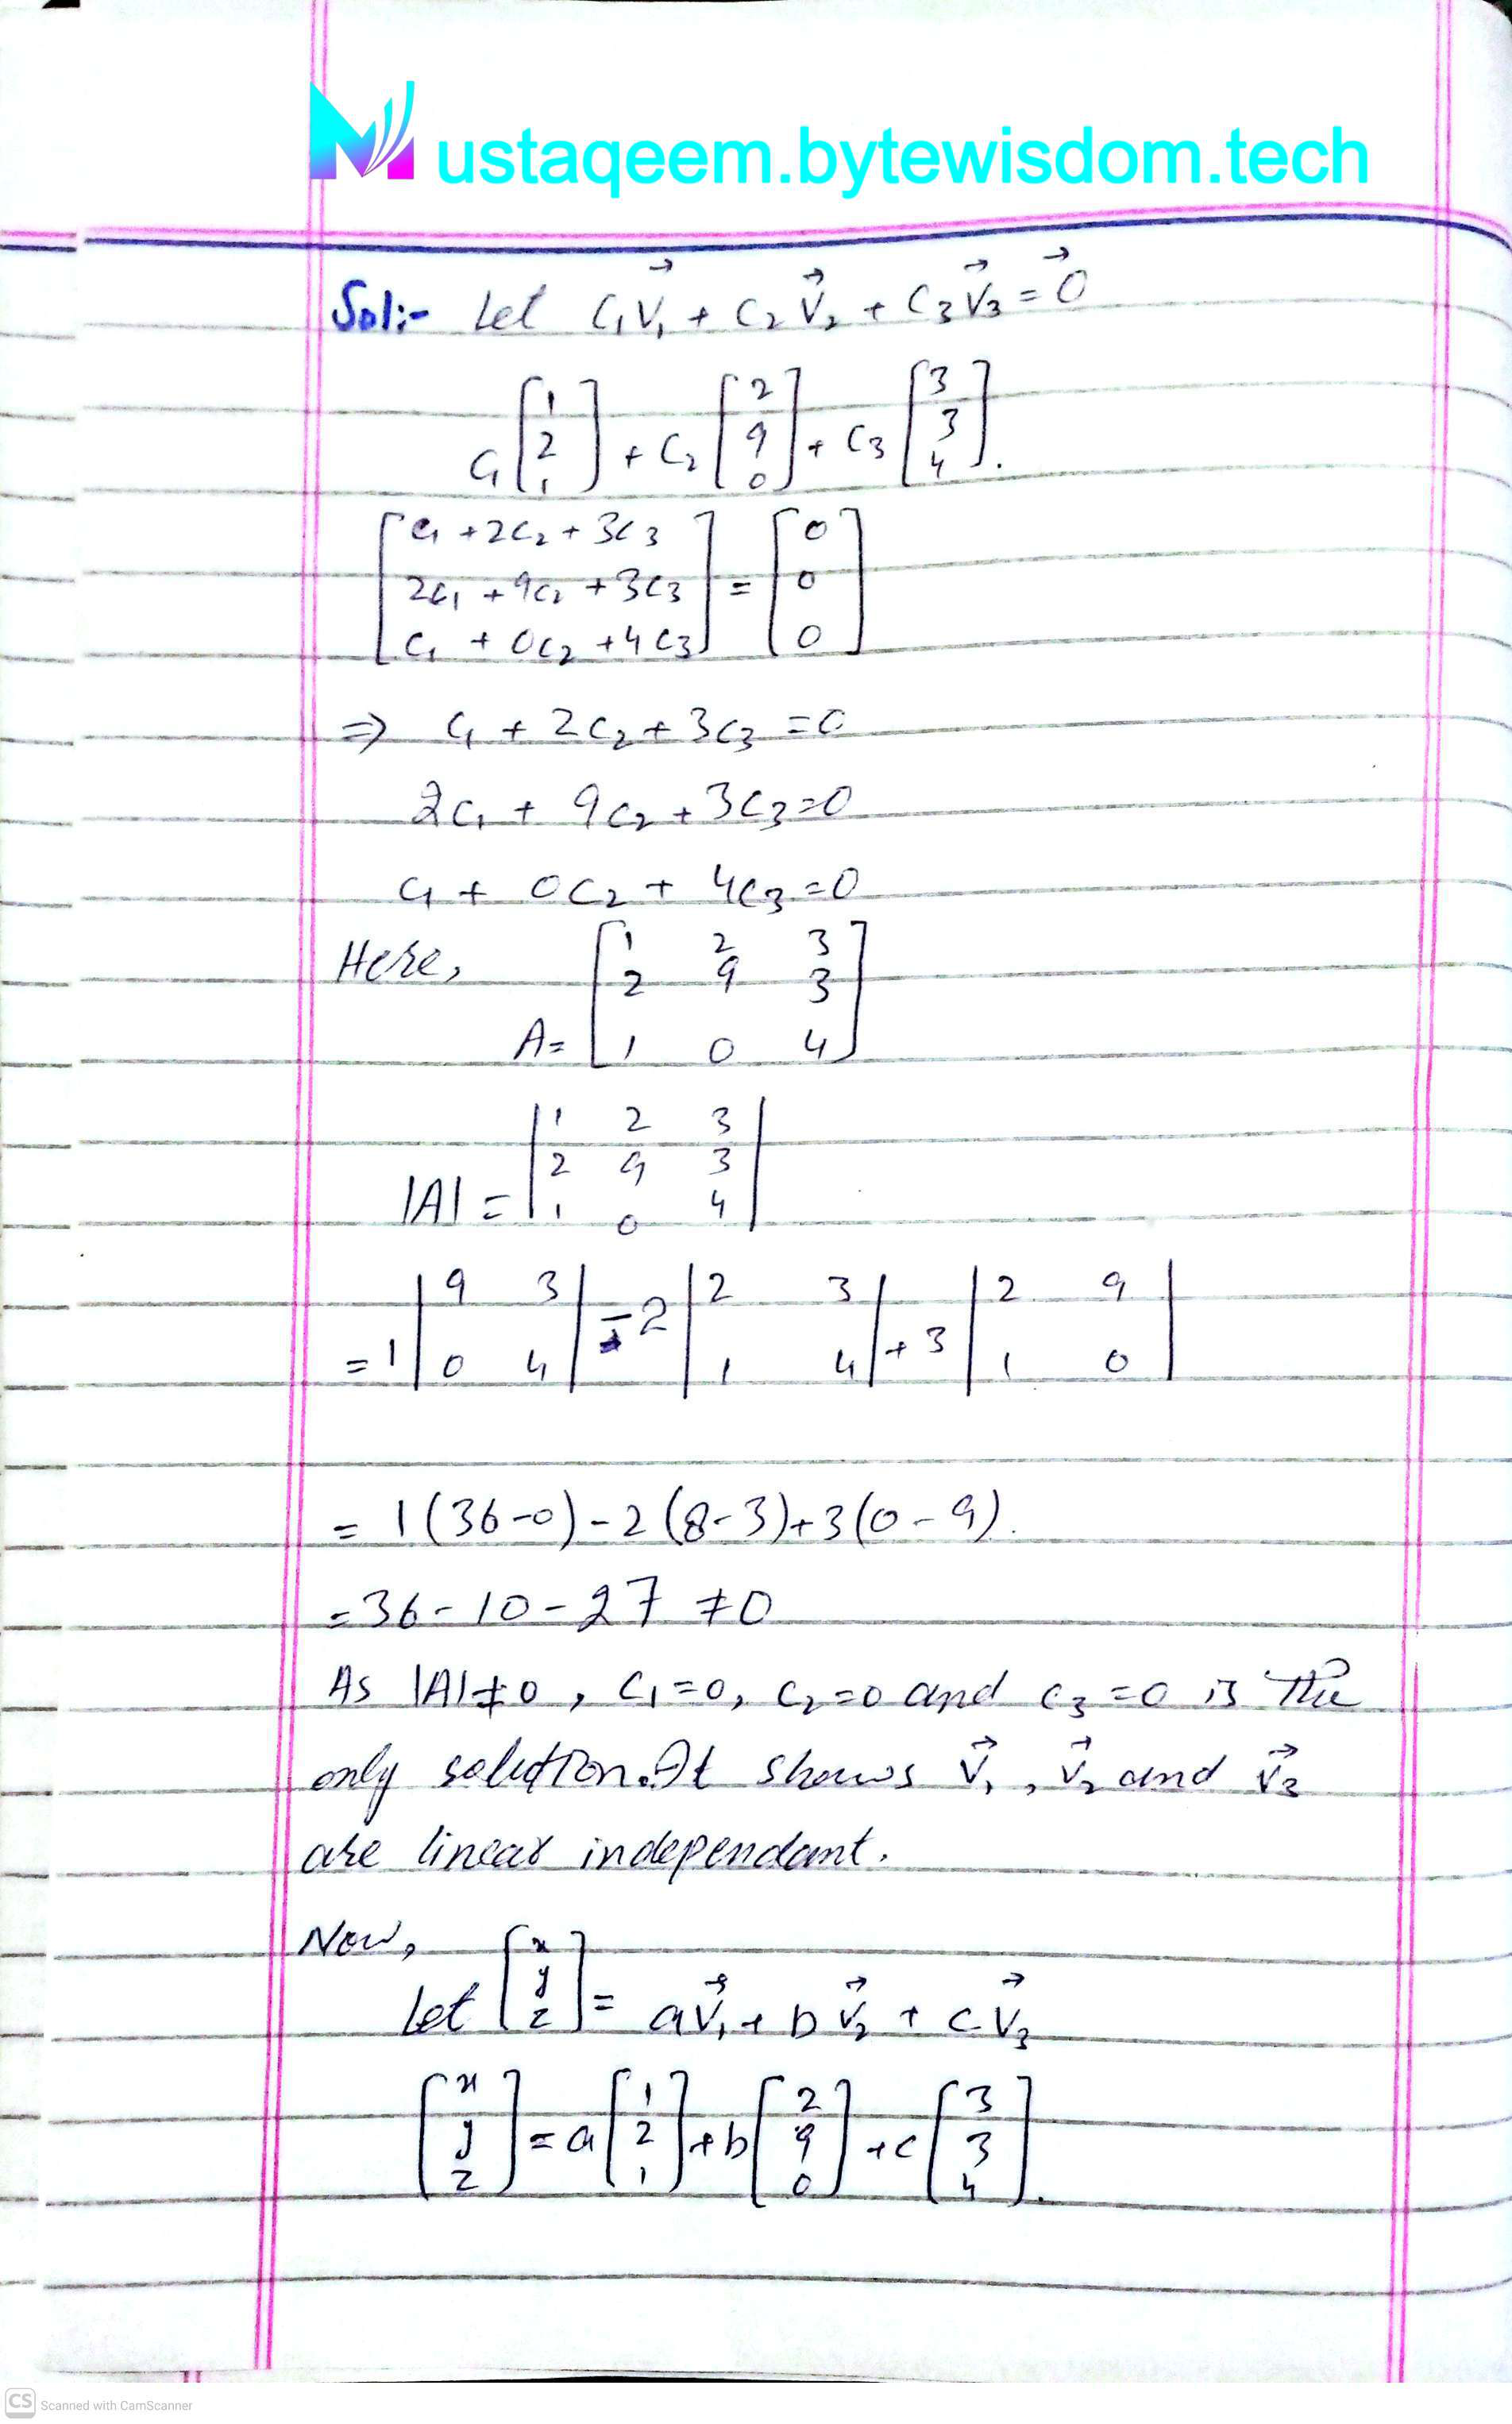 Mustaqeem.bytewisdom.tech
Sol:- Let C₁V⃗₁ + C₂V⃗₂ + C₃V⃗₃ = 0⃗
C₁ [1 2 1] + C₂ [2 9 0] + C₃ [3 3 4].
[C₁ + 2C₂ + 3C₃
2C₁ + 9C₂ + 3C₃
C₁ + 0C₂ + 4C₃] = [0 0 0]
⇒ C₁ + 2C₂ + 3C₃ = 0
2C₁ + 9C₂ + 3C₃ = 0
C₁ + 0C₂ + 4C₃ = 0
Here,
A = [1 2 3
2 9 3
1 0 4]
|A| = |1 2 3
2 9 3
1 0 4|
= 1 |9 3 0 4| - 2 |2 3 1 4| + 3 |2 9 1 0|
= 1(36-0) - 2(8-3) + 3(0-9).
= 36 - 10 - 27 ≠ 0
As |A| ≠ 0, C₁=0, C₂=0 and C₃=0 is the
only solution. It shows V⃗₁, V⃗₂ and V⃗₃
are linear independant.
Now,
Let [x y z] = aV⃗₁ + bV⃗₂ + cV⃗₃
[x y z] = a[1 2 1] + b[2 9 0] + c[3 3 4].
CS Scanned with CamScanner